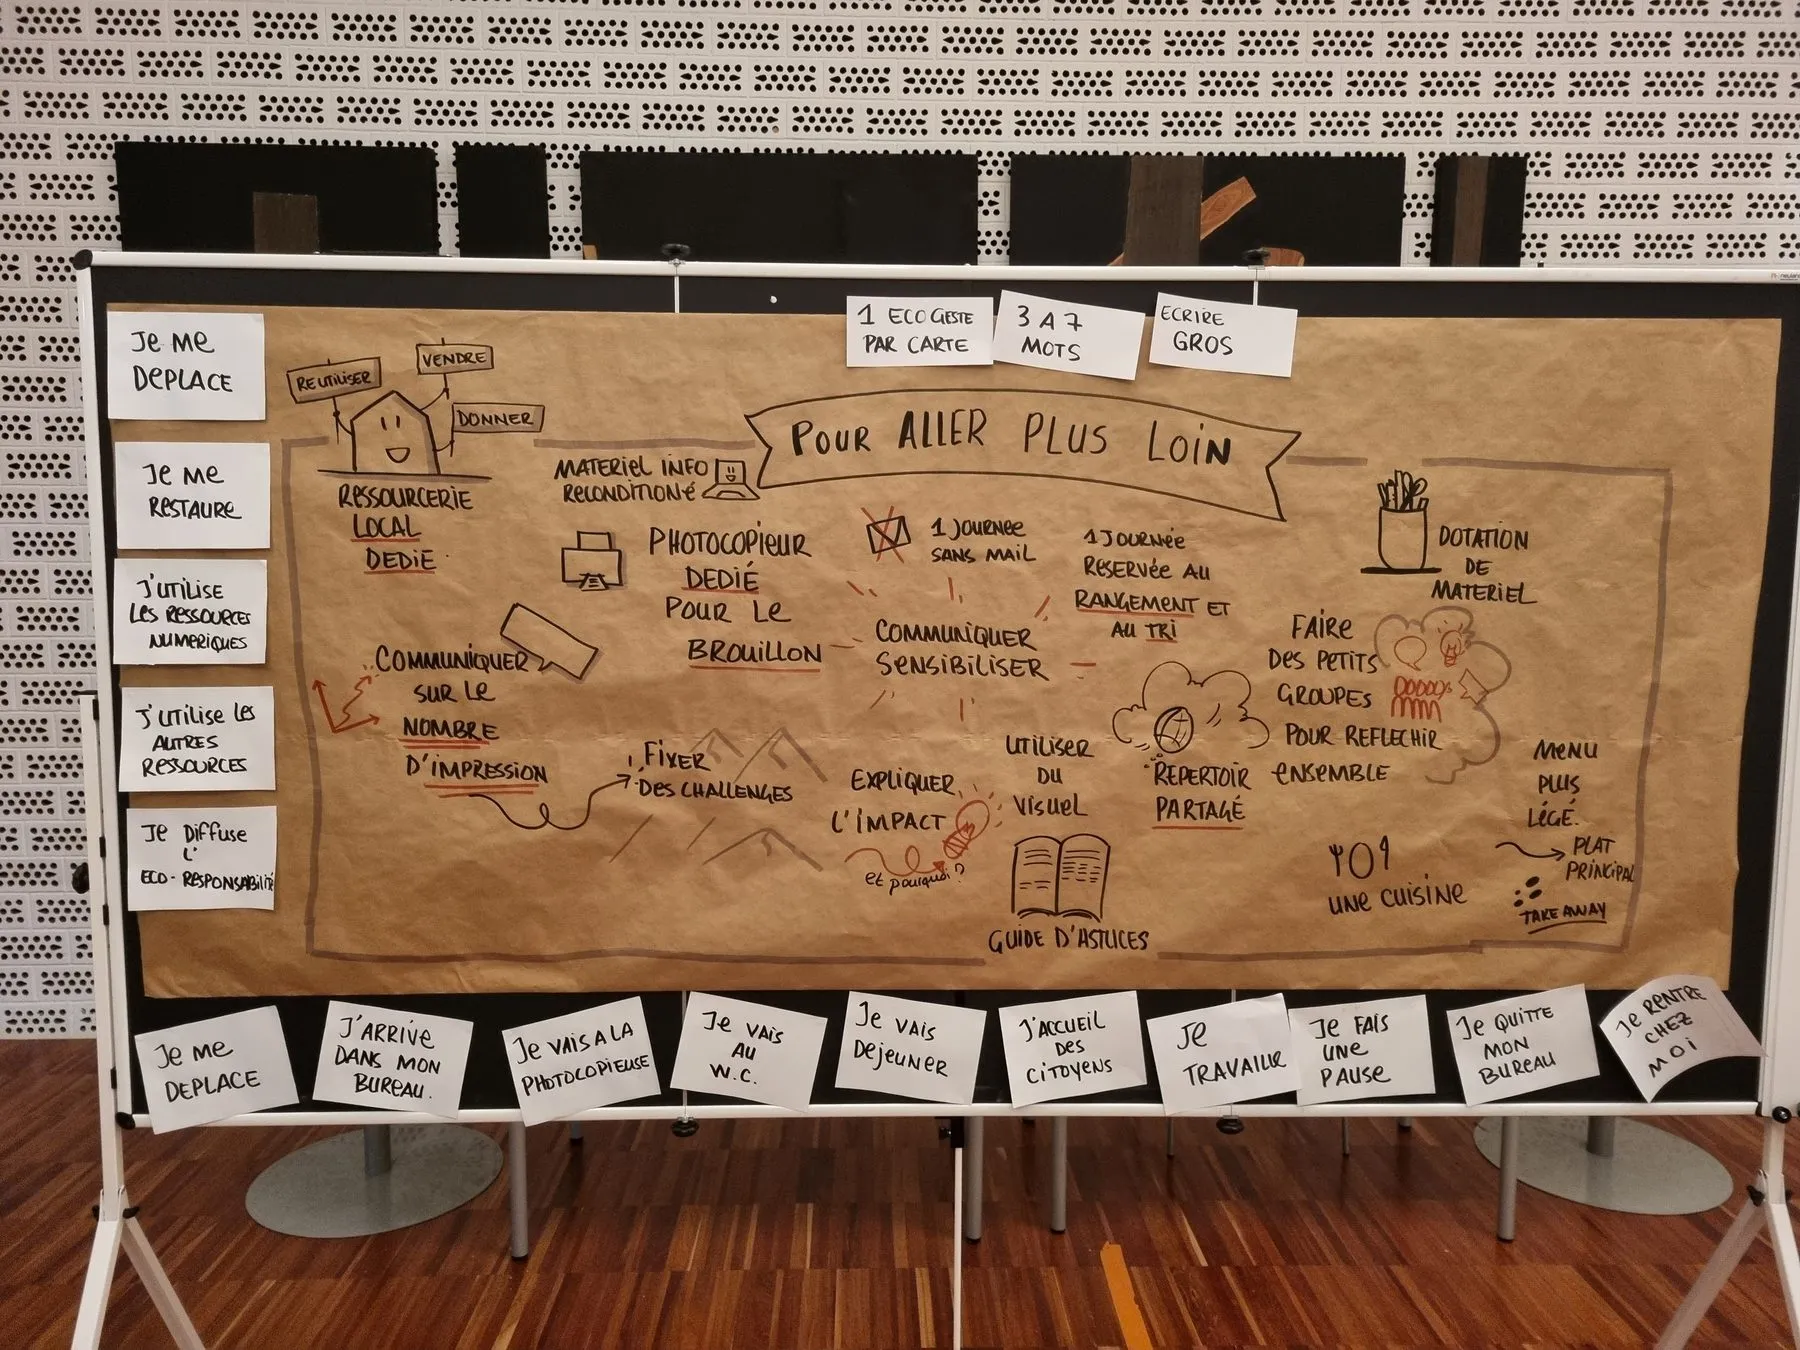 1 ECOGESTE
PAR CARTE
3 A 7
MOTS
ECRIRE
GROS
JE ME
DEPLACE
JE ME
RESTAURE
J'UTILISE
LES RESSOURCES
NUMERIQUES
J'UTILISE LES
AUTRES
RESSOURCES
JE DIFFUSE
L'
ECO-RESPONSABILITÉ
POUR ALLER PLUS LOIN
REUTILISER
VENDRE
DONNER
RESSOURCERIE
LOCAL
DEDIE
MATERIEL INFO
RECONDITIONÉ
PHOTOCOPIEUR
DEDIÉ
POUR LE
BROUILLON
1 JOURNEE
SANS MAIL
1 JOURNÉE
RESERVÉE AU
RANGEMENT ET
AU TRI
DOTATION
DE
MATERIEL
COMMUNIQUER
SENSIBILISER
FAIRE
DES PETITS
GROUPES
POUR REFLECHIR
ENSEMBLE
COMMUNIQUER
SUR LE
NOMBRE
D'IMPRESSION
FIXER
DES CHALLENGES
EXPLIQUER
L'IMPACT
et pourquoi?
UTILISER
DU
VISUEL
REPERTOIR
PARTAGÉ
GUIDE D'ASTUCES
UNE CUISINE
MENU
PLUS
LÉGÉ.
PLAT
PRINCIPAL
TAKE AWAY
JE ME
DEPLACE
J'ARRIVE
DANS MON
BUREAU.
JE VAIS A LA
PHOTOCOPIEUSE
JE VAIS
AU
W.C.
JE VAIS
DEJEUNER
J'ACCUEIL
DES
CITOYENS
JE
TRAVAILLE
JE FAIS
UNE
PAUSE
JE QUITTE
MON
BUREAU
JE RENTRE
CHEZ
MOI